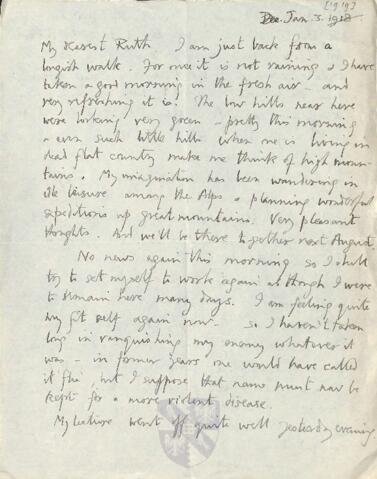 [1919]
Dec. Jan. 3. 1918
My dearest Ruth I am just back from a
longish walk. For once it is not raining & I have
taken a good morning in the fresh air – and
very refreshing it is! The low hills near here
were looking very green – pretty this morning
– even such little hills when one is living in
dead flat country make me think of high moun-
tains. My imagination has been wandering in
idle leisure among the Alps & planning wonderful
expeditions up great mountains. Very pleasant
thoughts. And we'll be there together next August.
No news again this morning so I shall
try to set myself to work again as though I were
to remain here many days. I am feeling quite
my fit self again now – so I haven't taken
long in vanquishing my enemy whatever it
was – in former years one would have called
it 'flu', but I suppose that name must now be
kept for a more violent disease.
My lecture went off quite well yesterday evening.